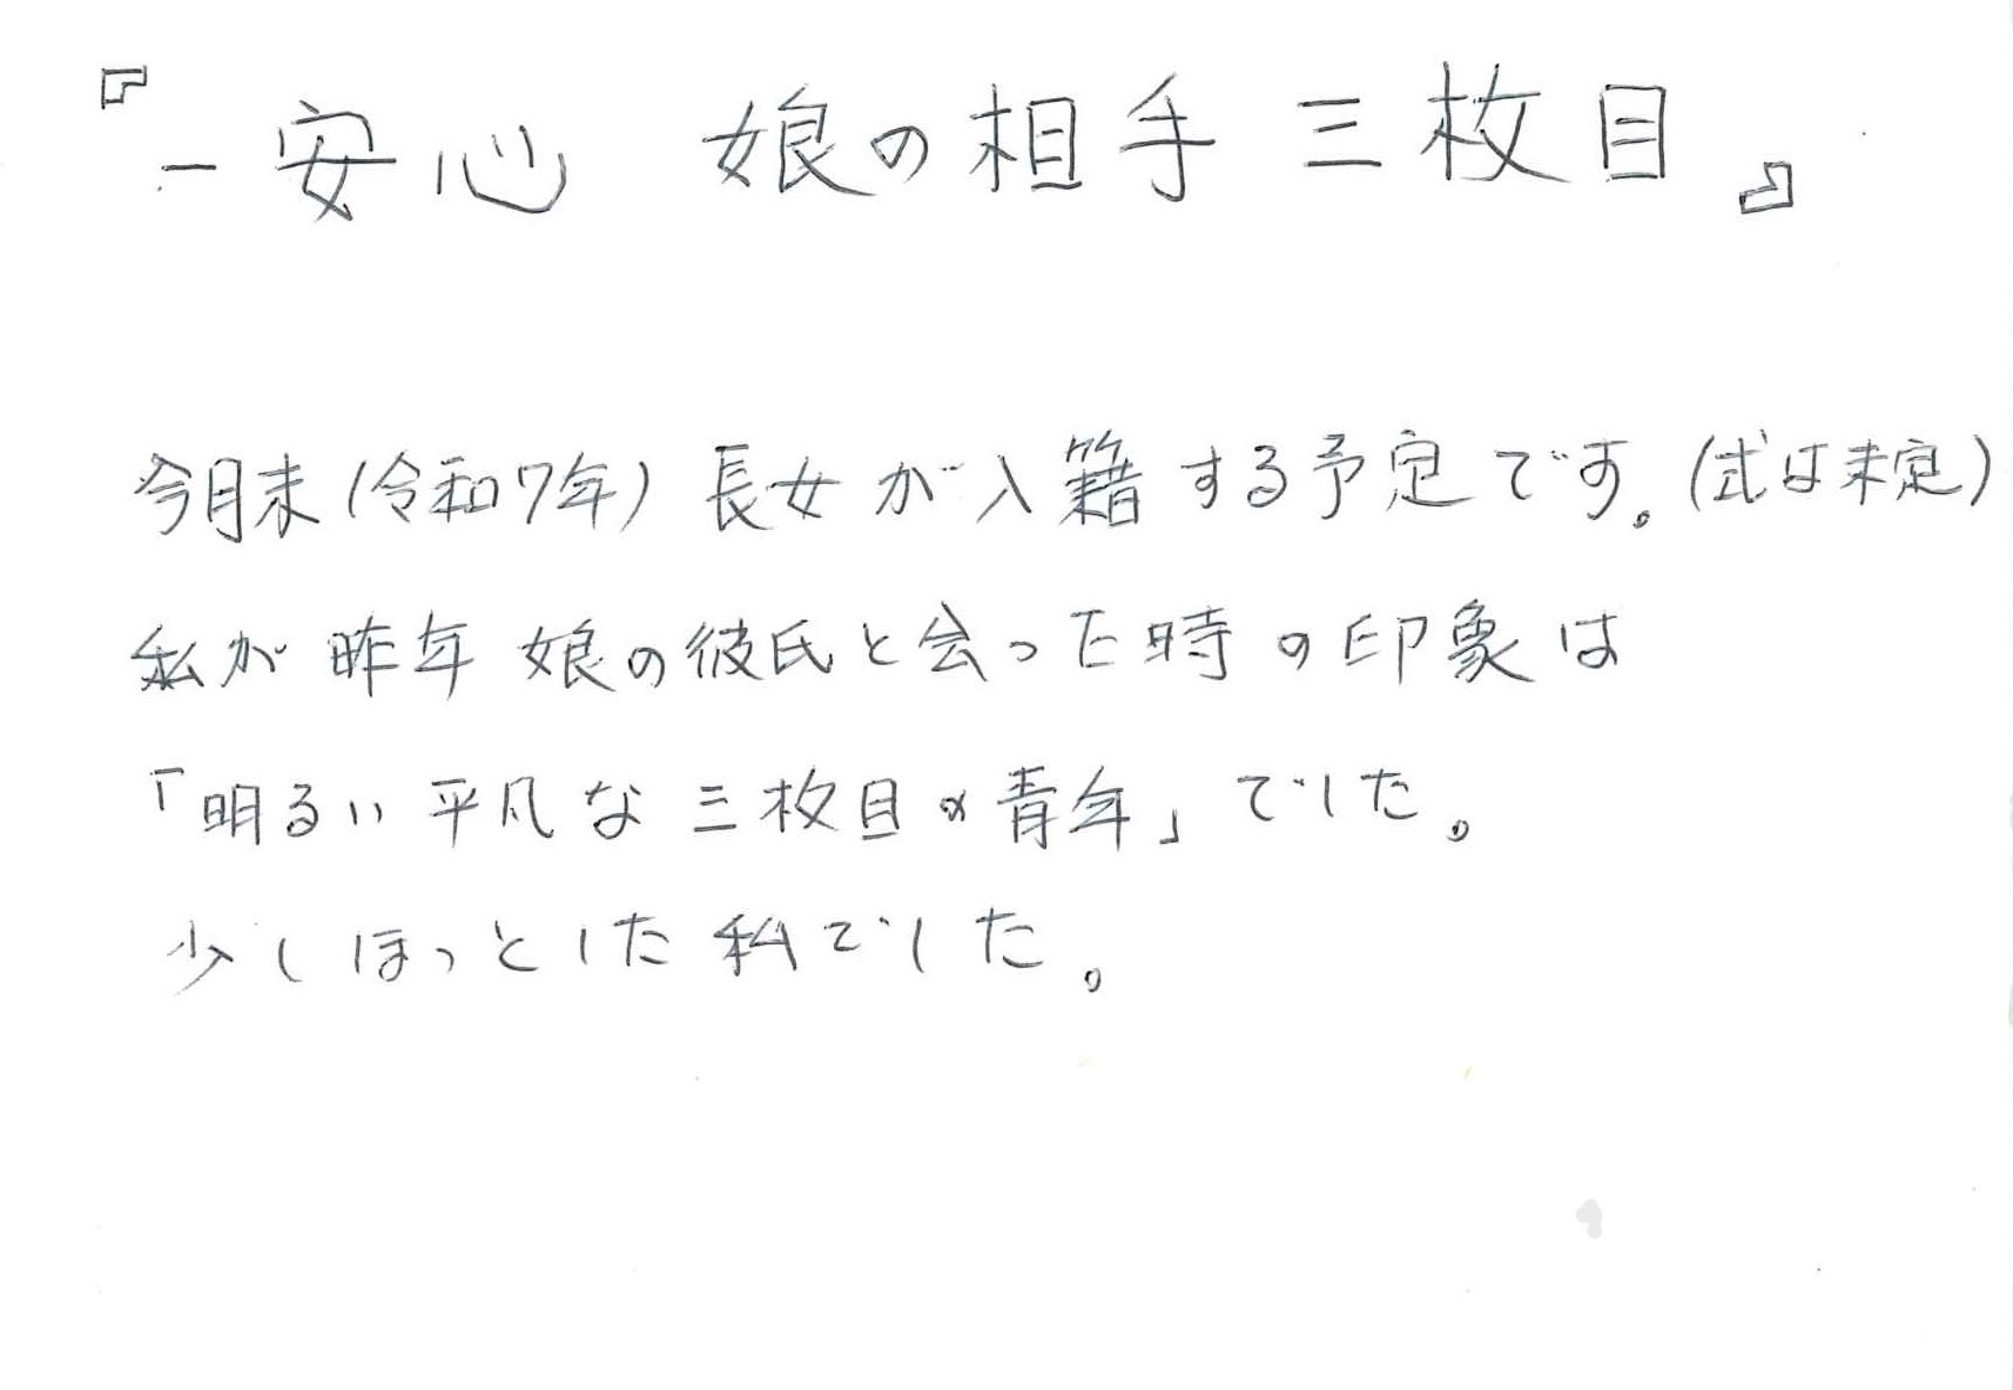 『一安心　娘の相手　三枚目』
今月末(令和7年)長女が入籍する予定です。(式は未定)
私が昨年 娘の彼氏と会った時の印象は
「明るい平凡な三枚目の青年」でした。
少しほっとした私でした。